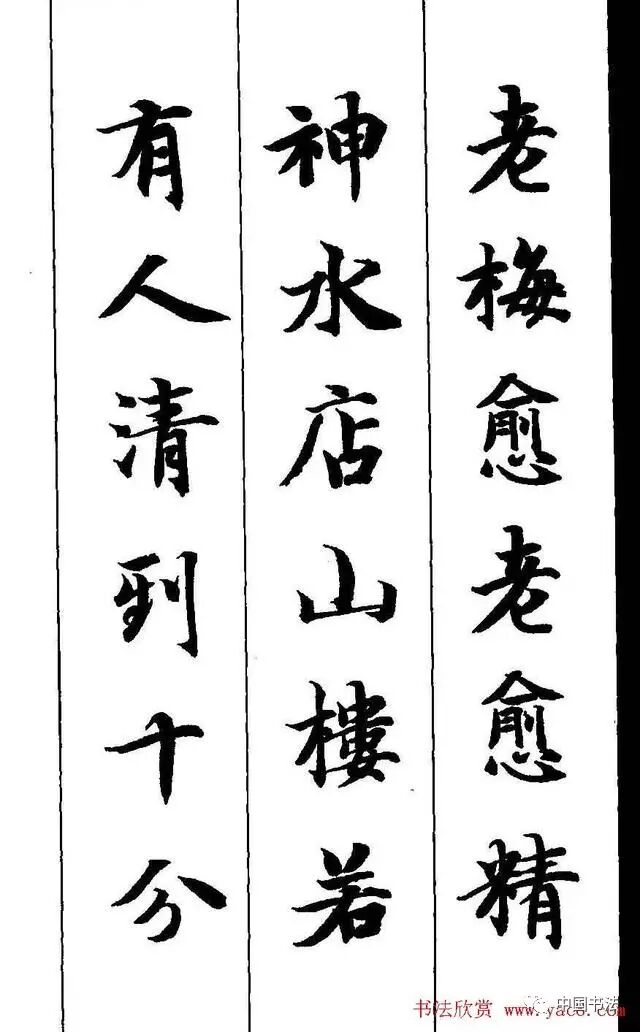 老梅愈老愈精
神水店山樓若
有人清到十分
中国书法
书法欣赏 www.yac8.com